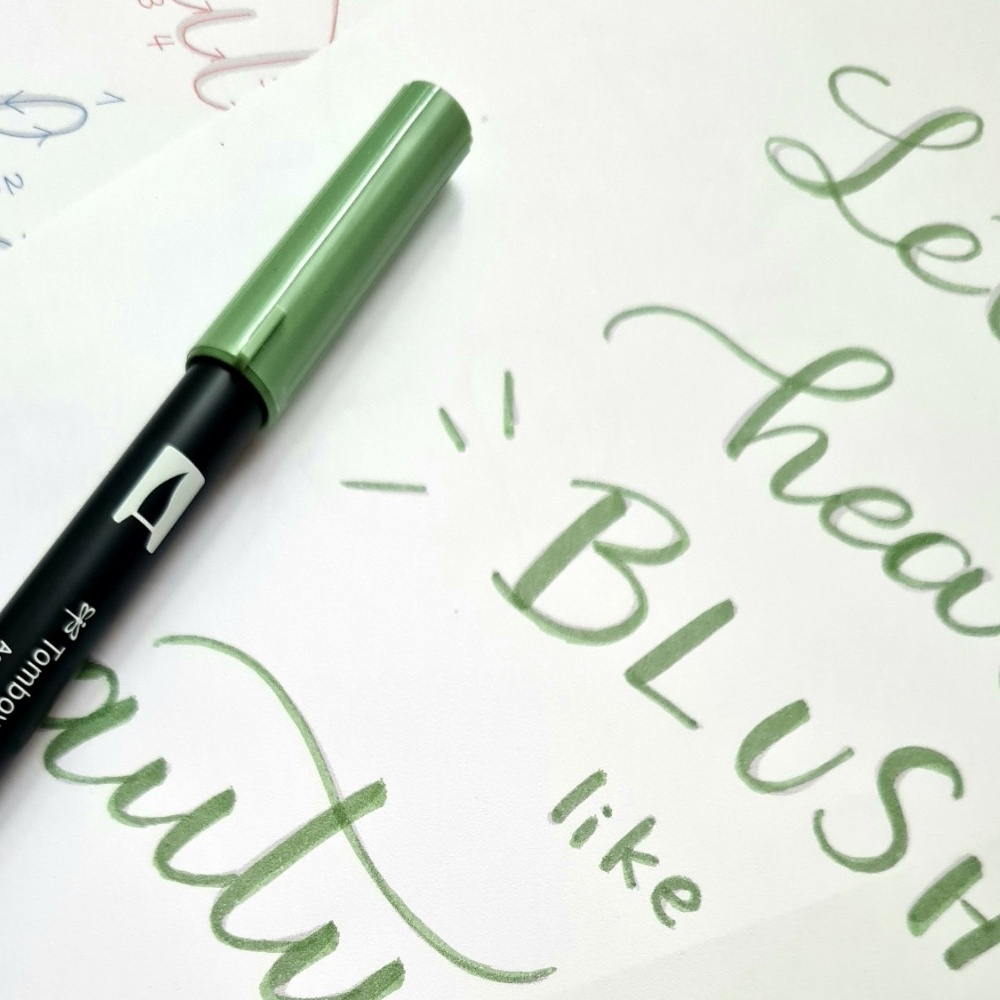 Let
hea
BLUSH
like
autu
Tombow
3 4
2